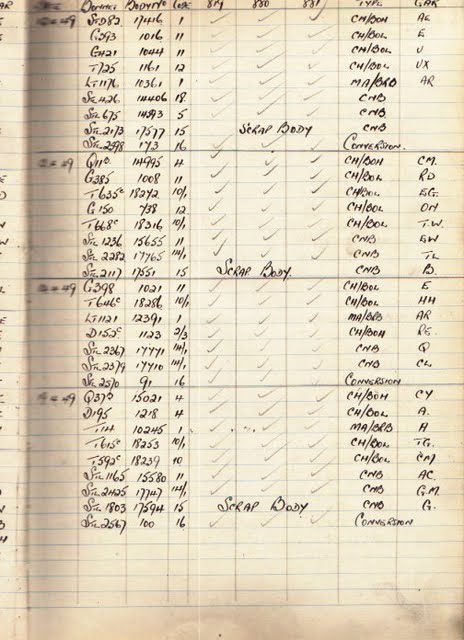 BONNET BODY Nº CODE 879 880 881 TYPE GAR
49 ST.D82 17416 1 CH/BOH AE
G393 1016 11 CH/BOL E
G421 1044 11 CH/BOL U
T725 1161 12 CH/BOL UX
LT1176 10361 1 MA/BRB AR
STL 426 14406 18 CNB
STL 675 14393 5 CNB
STL 2173 17577 15 SCRAP BODY CNB
STL 2598 173 16 CONVERSION.
49 Q11C 14995 4 CH/BOH CM.
G385 1008 11 CH/BOL RD
T635C 18272 10/1 CH/BOL EG.
G150 738 12 CH/BOL ON
T668C 18316 10/1 CH/BOL T.W.
STL 1236 15655 11 CNB EW
STL 2282 17765 14/1 CNB TL
STL 2117 17551 15 SCRAP BODY. CNB B.
49 G398 1021 11 CH/BOL E
T646C 18286 10/1 CH/BOL HH
LT1121 12391 1 MA/BRB AR
D152C 1123 2/3 CH/BOH RE.
STL 2367 17771 14/1 CNB Q
STL 2379 17710 14/1 CNB CL
STL 2570 91 16 CONVERSION
49 Q37C 15021 4 CH/BOH CY
D195 1218 4 CH/BOL A.
T14 10245 1 MA/BRB A
T615C 18253 10/1 CH/BOL TG.
T592C 18239 10 CH/BOL CM
STL 1165 15580 11 CNB AC.
STL 2425 17747 14/1 CNB G.M.
STL 1803 17594 15 SCRAP BODY CNB G.
STL 2567 100 16 CONVERSION